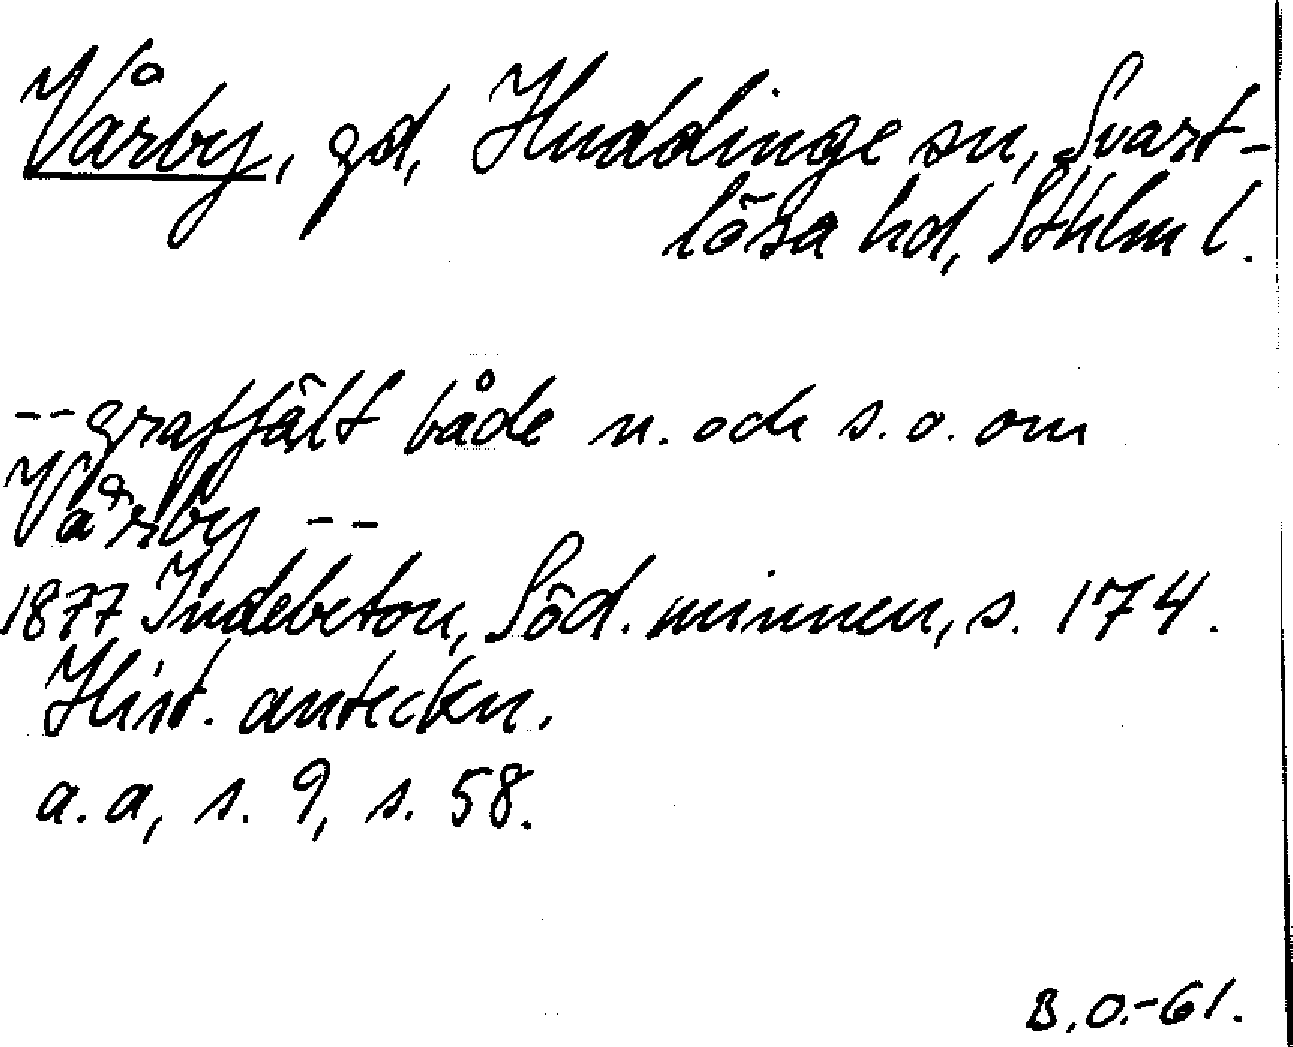 Vårby, gd, Huddinge sn, Svart-
lösa hd, Sthlm l.
-- graffält både n. och s.o. om
Vårby --
1877 Indebetou, Söd. minnen, s. 174.
Hist. anteckn.
a.a, s. 9, s. 58.
B.O.-61.